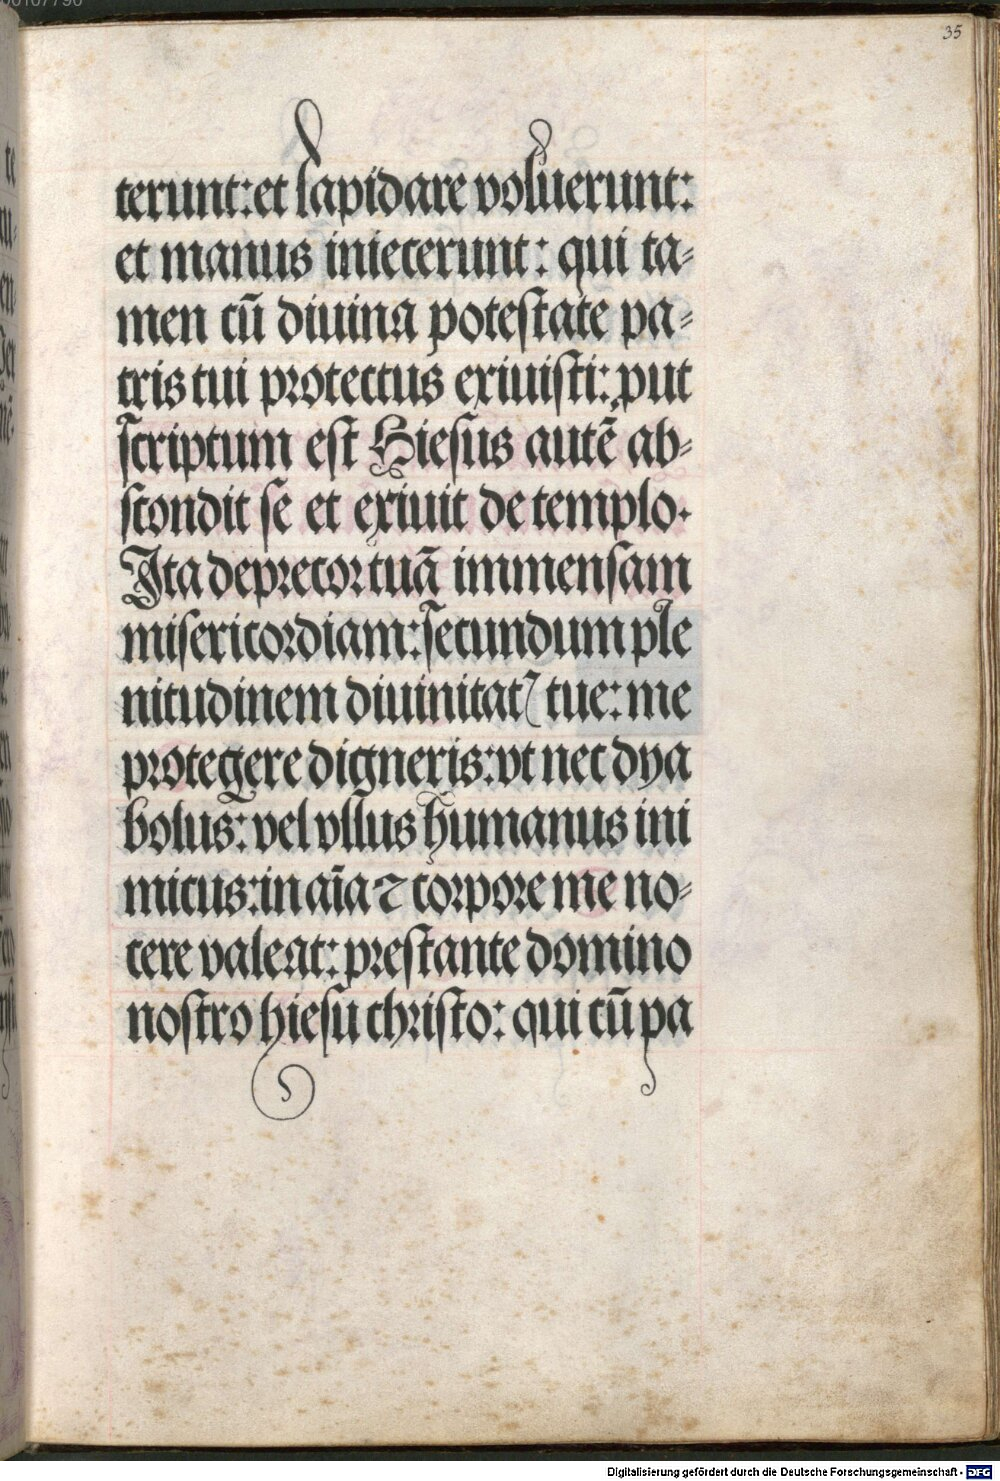 35
terunt: et lapidare voluerunt:
et manus iniecerunt: qui ta-
men cū diuina potestate pa-
tris tui protectus exiuisti: ꝓut
scriptum est Hiesus autē ab-
scondit se et exiuit de templo.
Ita deprecor tuā immensam
misericordiam: secundum ple
nitudinem diuinitatꝭ tue: me
protegere digneris: vt nec dya
bolus: vel vllus humanus ini
micus: in aīa ⁊ corpore me no-
cere valeat: prestante domino
nostro hiesu christo: qui cū pa
Digitalisierung gefördert durch die Deutsche Forschungsgemeinschaft - DFG